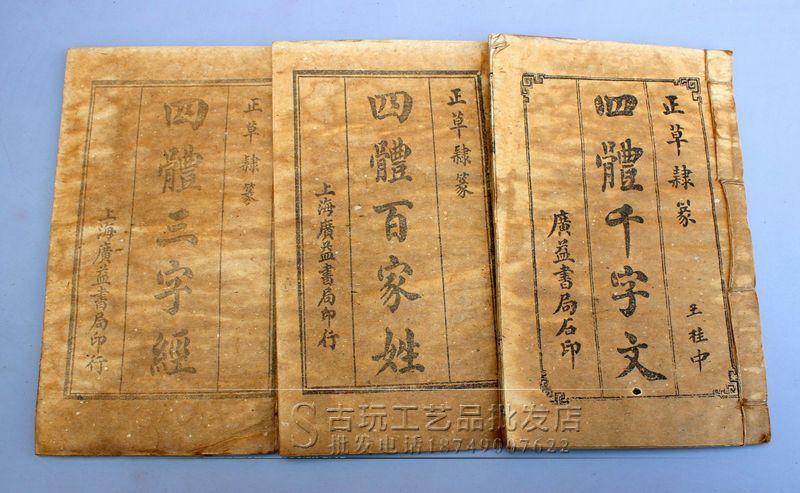 正草隸篆
四體千字文
廣益書局石印
王桂中
正草隸篆
四體百家姓
上海廣益書局印行
正草隸篆
四體三字經
上海廣益書局印行
S古玩工艺品批发店
批发电话18749007622